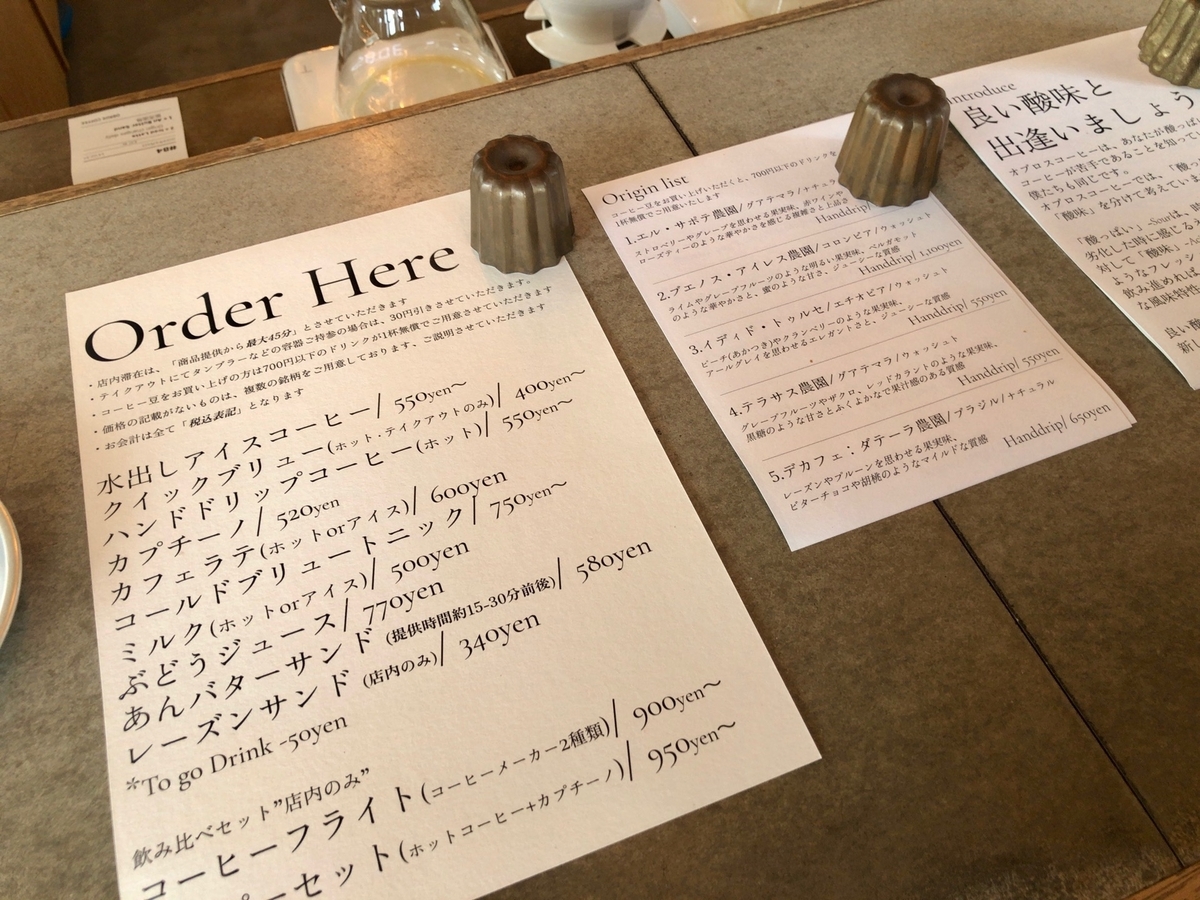 Order Here
・店内滞在は、「商品提供から最大45分」とさせていただきます
・テイクアウトにてタンブラーなどの容器ご持参の場合は、30円引きさせていただきます。
・コーヒー豆をお買い上げの方は700円以下のドリンクが1杯無償でご用意させていただきます
・価格の記載がないものは、複数の銘柄をご用意しております、ご説明させていただきます
・お会計は全て「税込表記」となります
水出しアイスコーヒー/ 550yen〜
クイックブリュー(ホット・テイクアウトのみ)/ 400yen〜
ハンドドリップコーヒー(ホット)/ 550yen〜
カプチーノ/ 520yen
カフェラテ(ホットorアイス)/ 600yen
コールドブリュートニック/ 750yen〜
ミルク(ホットorアイス)/ 500yen
ぶどうジュース/ 770yen
あんバターサンド (提供時間約15-30分前後)/ 580yen
レーズンサンド (店内のみ)/ 340yen
*To go Drink -50yen
飲み比べセット"店内のみ"
コーヒーフライト(コーヒーメーカー2種類)/ 900yen〜
ーセット(ホットコーヒー+カプチーノ)/ 950yen〜
Origin list
コーヒー豆をお買い上げいただくと、700円以下のドリンクを
1杯無償でご用意いたします
1.エル・サポテ農園/グアテマラ/ナチュラ
ストロベリーやグレープを思わせる果実味、赤ワインや
ローズティーのような華やかさを感じる複雑さと上品さ
Handdrip/
2.ブエノス・アイレス農園/コロンビア/ウォッシュト
ライムやグレープフルーツのような明るい果実味、ベルガモット
のような華やかさと、蜜のような甘さ、ジューシーな質感
Handdrip/ 1,100yen
3.イディド・トゥルセ/エチオピア/ウォッシュト
ピーチ(あかつき)やクランベリーのような果実味、
アールグレイを思わせるエレガントさと、ジューシーな質感
Handdrip/ 550yen
4.テラサス農園/グアテマラ/ウォッシュト
グレープフルーツやザクロ、レッドカラントのような果実味、
黒糖のような甘さとふくよかなで果汁感のある質感
Handdrip/ 550yen
5.デカフェ：ダテーラ農園/ブラジル/ナチュラル
レーズンやプルーンを思わせる果実味、
ビターチョコや胡桃のようなマイルドな質感
Handdrip/ 650yen
introduce
良い酸味と
出逢いましょう
オブロスコーヒーは、あなたが酸っぱ
コーヒーが苦手であることを知って
僕たちも同じです。
オブロスコーヒーでは、「酸っ
「酸味」を分けて考えていま
「酸っぱい」-Sourは、
劣化した時に感じる
対して「酸味」
ようなフレッシ
飲み進めれば
な風味特性
良い
新し